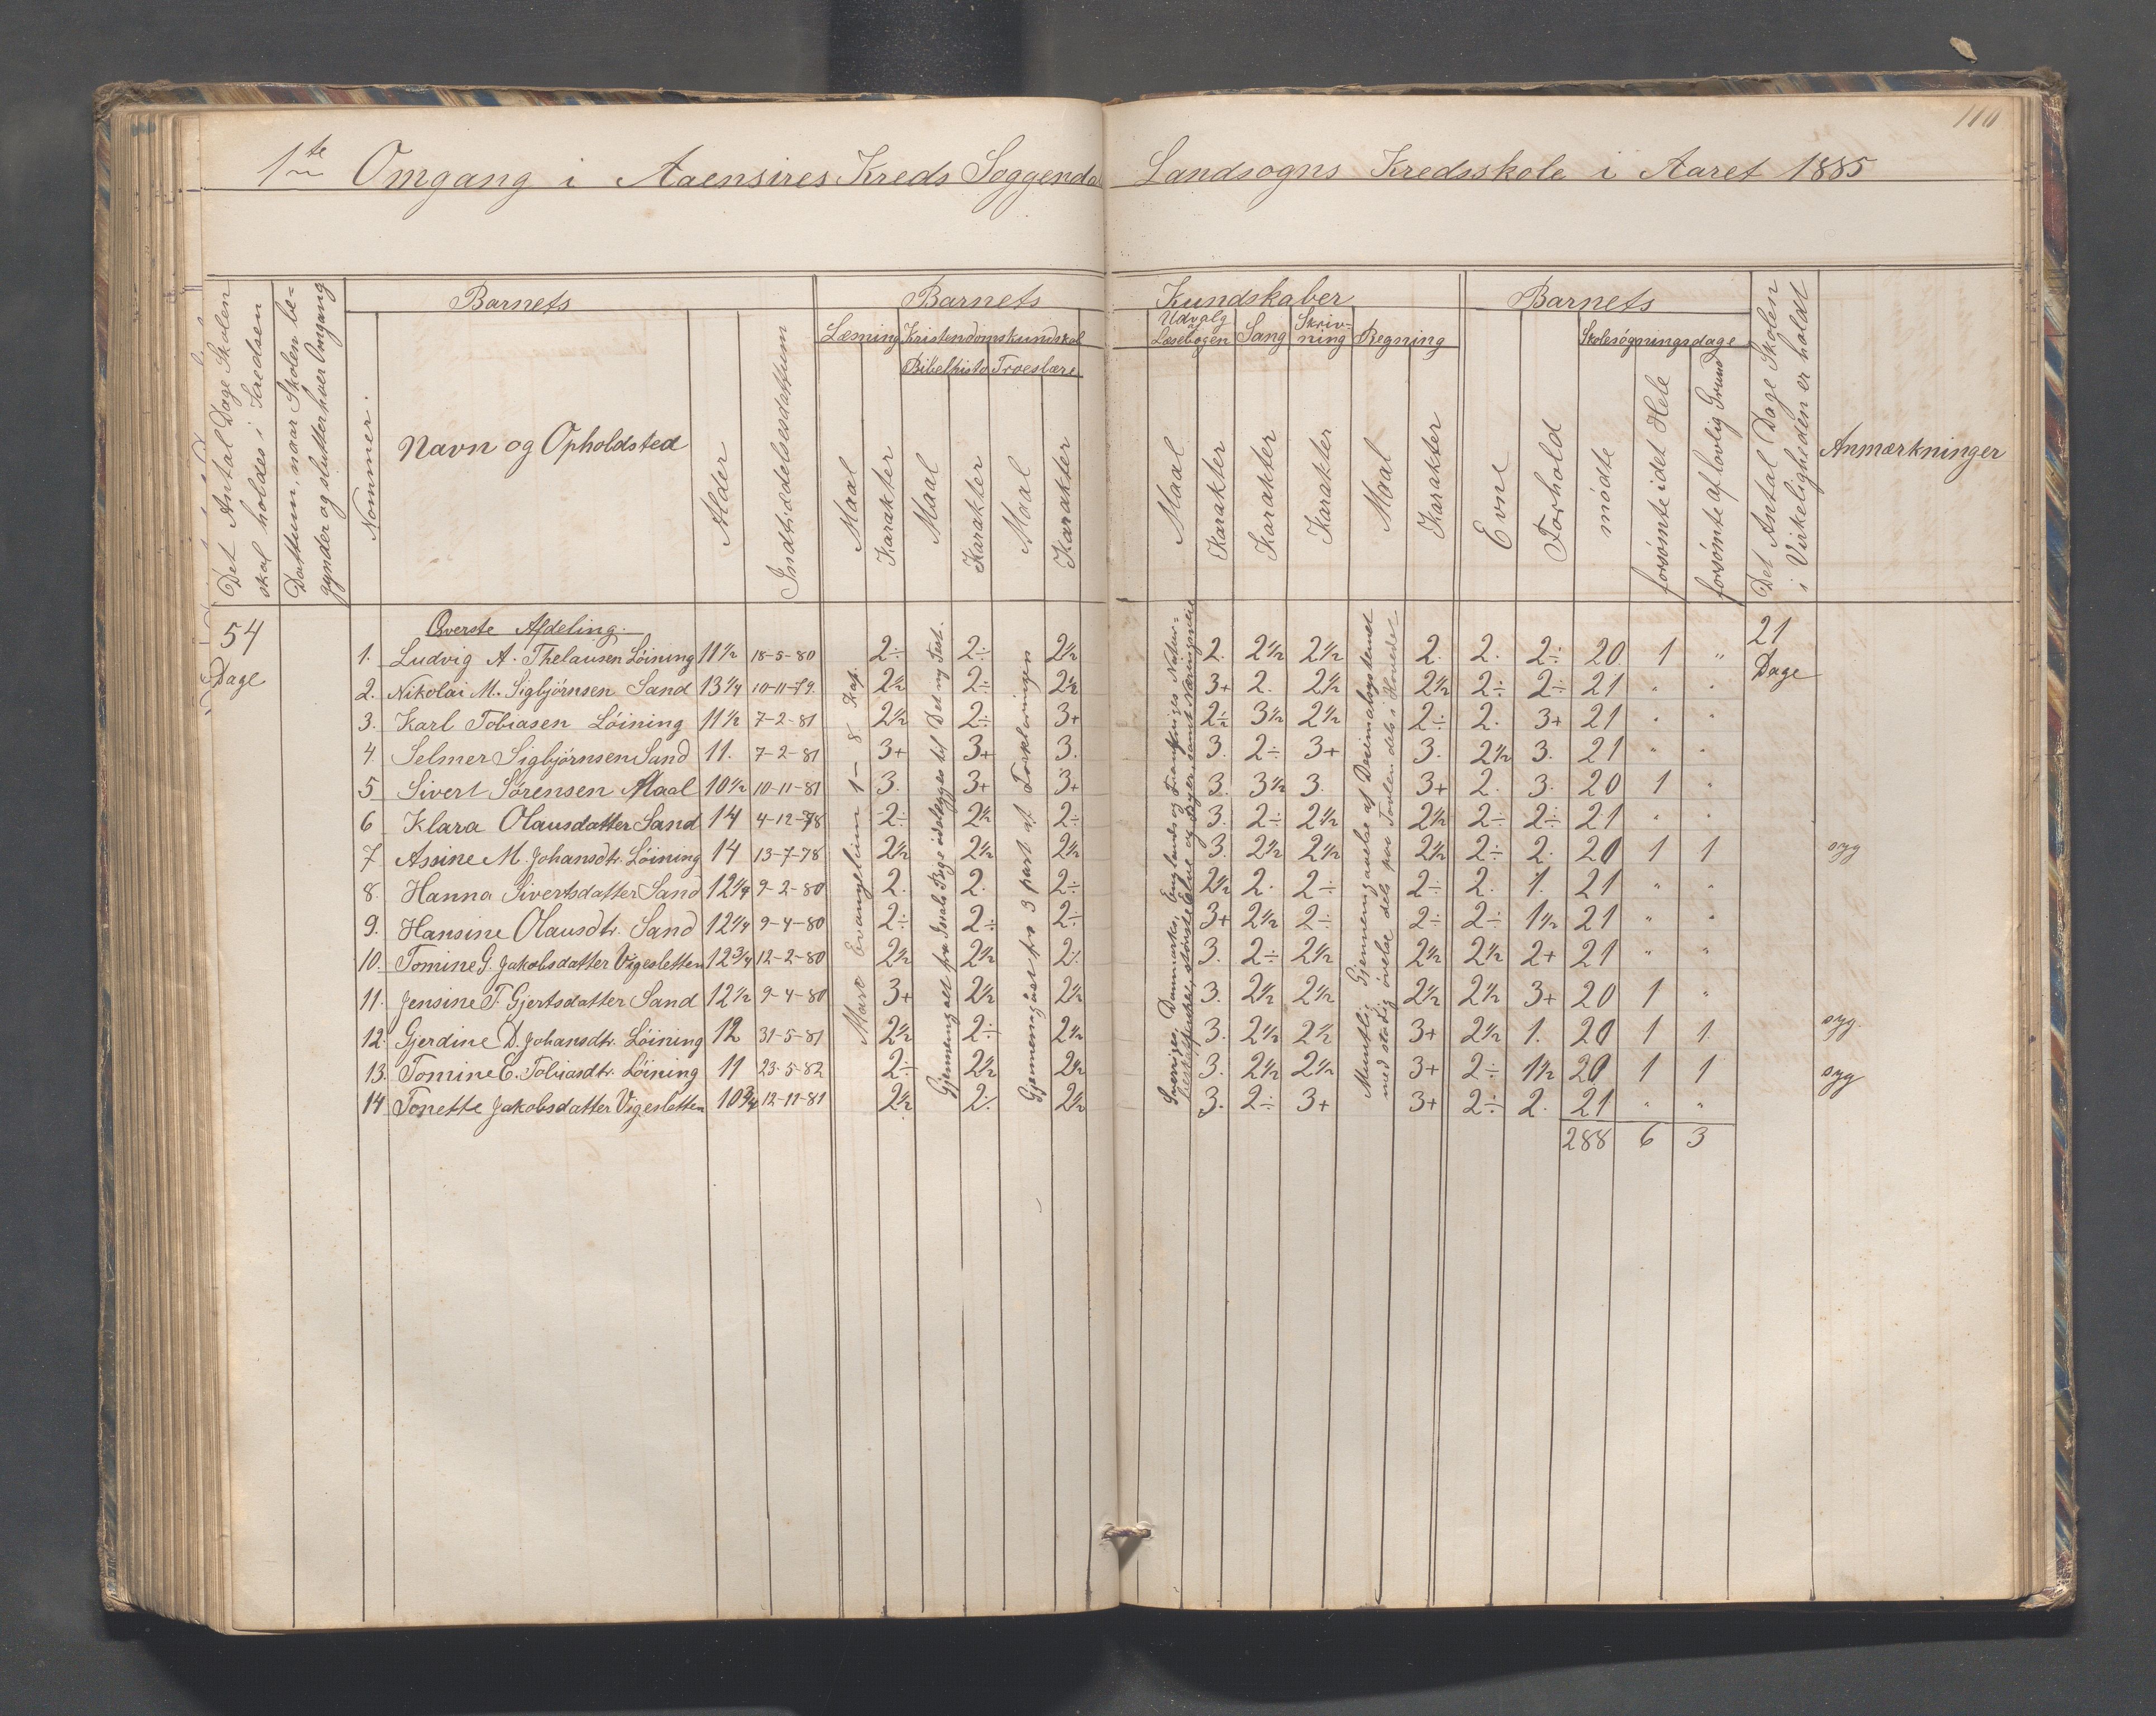 110
1te Omgang i Aaensires Kreds Soggendals Landsogns Kredsskole i Aaret 1885
Det Antal Dage Skolen skal holdes i Kredsen
Dattum, naar Skolen begynder og slutter hver Omgang
Barnets
Nommer.
Navn og Opholdsted
Alder
Indtrædelsesdattum
Barnets Kundskaber
Læsning
Maal
Karakter
Kristendomskundskab
Bibelhisto
Maal
Karakter
Troeslære
Maal
Karakter
Udvalg af Læsebogen
Maal
Karakter
Sang
Karakter
Skrivning
Karakter
Regning
Maal
Karakter
Barnets
Evne
Forhold
Skolesøgningsdage
mødte
forsømte i det Hele
forsømte af lovlig Grund
Det Antal Dage Skolen i Virkeligheden er holdt
Anmærkninger
54 Dage
21 Dage
Øverste Afdeling.
Mark Evangelium 1 – 8 Kap.
til Det ny Test.
Gjennemgaaet fra 3 part af Forklaringen
Sveriges, Danmarks, Englands og Frankriges Natur-
Muntlig Gjennemgaaelse af Decimalsystemet
med stadig øvelse dels paa Tavlen dels i Hovedet
1. Ludvig A. Thelausen Löining 11½ 18-5-80 2÷ 2÷ 2½ 2. 2½ 2½ 2. 2. 2÷ 20 1 "
2. Nikolai M. Sigbjörnsen Sand 13¼ 10-11-79. 2½ 2÷ 2½ 3+ 2. 2½ 2½ 2÷ 2÷ 21 " "
3. Karl Tobiasen Löining 11½ 7-2-81 2½ 2÷ 3+ 2½ 3½ 2½ 2÷ 2. 3+ 21 " "
4. Selmer Sigbjörnsen Sand 11. 7-2-81 3+ 3+ 3. 3. 2÷ 3+ 3. 2½ 3. 21 " "
5 Sivert Sörensen Maal 10½ 10-11-81 3. 3+ 3+ 3. 3½ 3. 3+ 2. 3. 20 1 "
6 Klara Olausdatter Sand 14 4-12-78 2÷ 2½ 2÷ 3. 2÷ 2½ 2½ 2÷ 2÷ 21 " "
7 Assine M. Johansdtr. Löining 14 13-7-78 2½ 2½ 2½ 3. 2½ 2½ 2½ 2÷ 2. 20 1 1 syg
8. Hanna Sivertsdatter Sand 12¼ 9-2-80 2. 2. 2÷ 2½ 2. 2÷ 2÷ 2. 1. 21 " "
9. Hansine Olausdtr. Sand 12¼ 9-4-80 2÷ 2÷ 2÷ 3+ 2½ 2÷ 2÷ 2÷ 1½ 21 " "
10. Tomine G. Jakobsdatter Vigesletten 12¾ 12-2-80 2½ 2½ 2÷ 3. 2÷ 2½ 2½ 2½ 2+ 21 " "
11. Jensine T. Gjertsdatter Sand 12½ 9-4-80 3+ 2½ 2½ 3. 2½ 2½ 2½ 2½ 3+ 20 1 "
12. Gjerdine D. Johansdtr. Löining 12 31-5-81 2½ 2÷ 2½ 3. 2½ 2½ 3+ 2½ 1. 20 1 1. syg.
13. Tomine E. Tobiasdtr. Löining 11 23-5-82 2÷ 2½ 2½ 3. 2½ 2½ 3+ 2÷ 1½ 20 1 1 syg
14 Tonette Jakobsdatter Vigesletten 10¾ 12-11-81 2½ 2÷ 2½ 3. 2÷ 3+ 3+ 2÷ 2. 21 " "
288 6 3